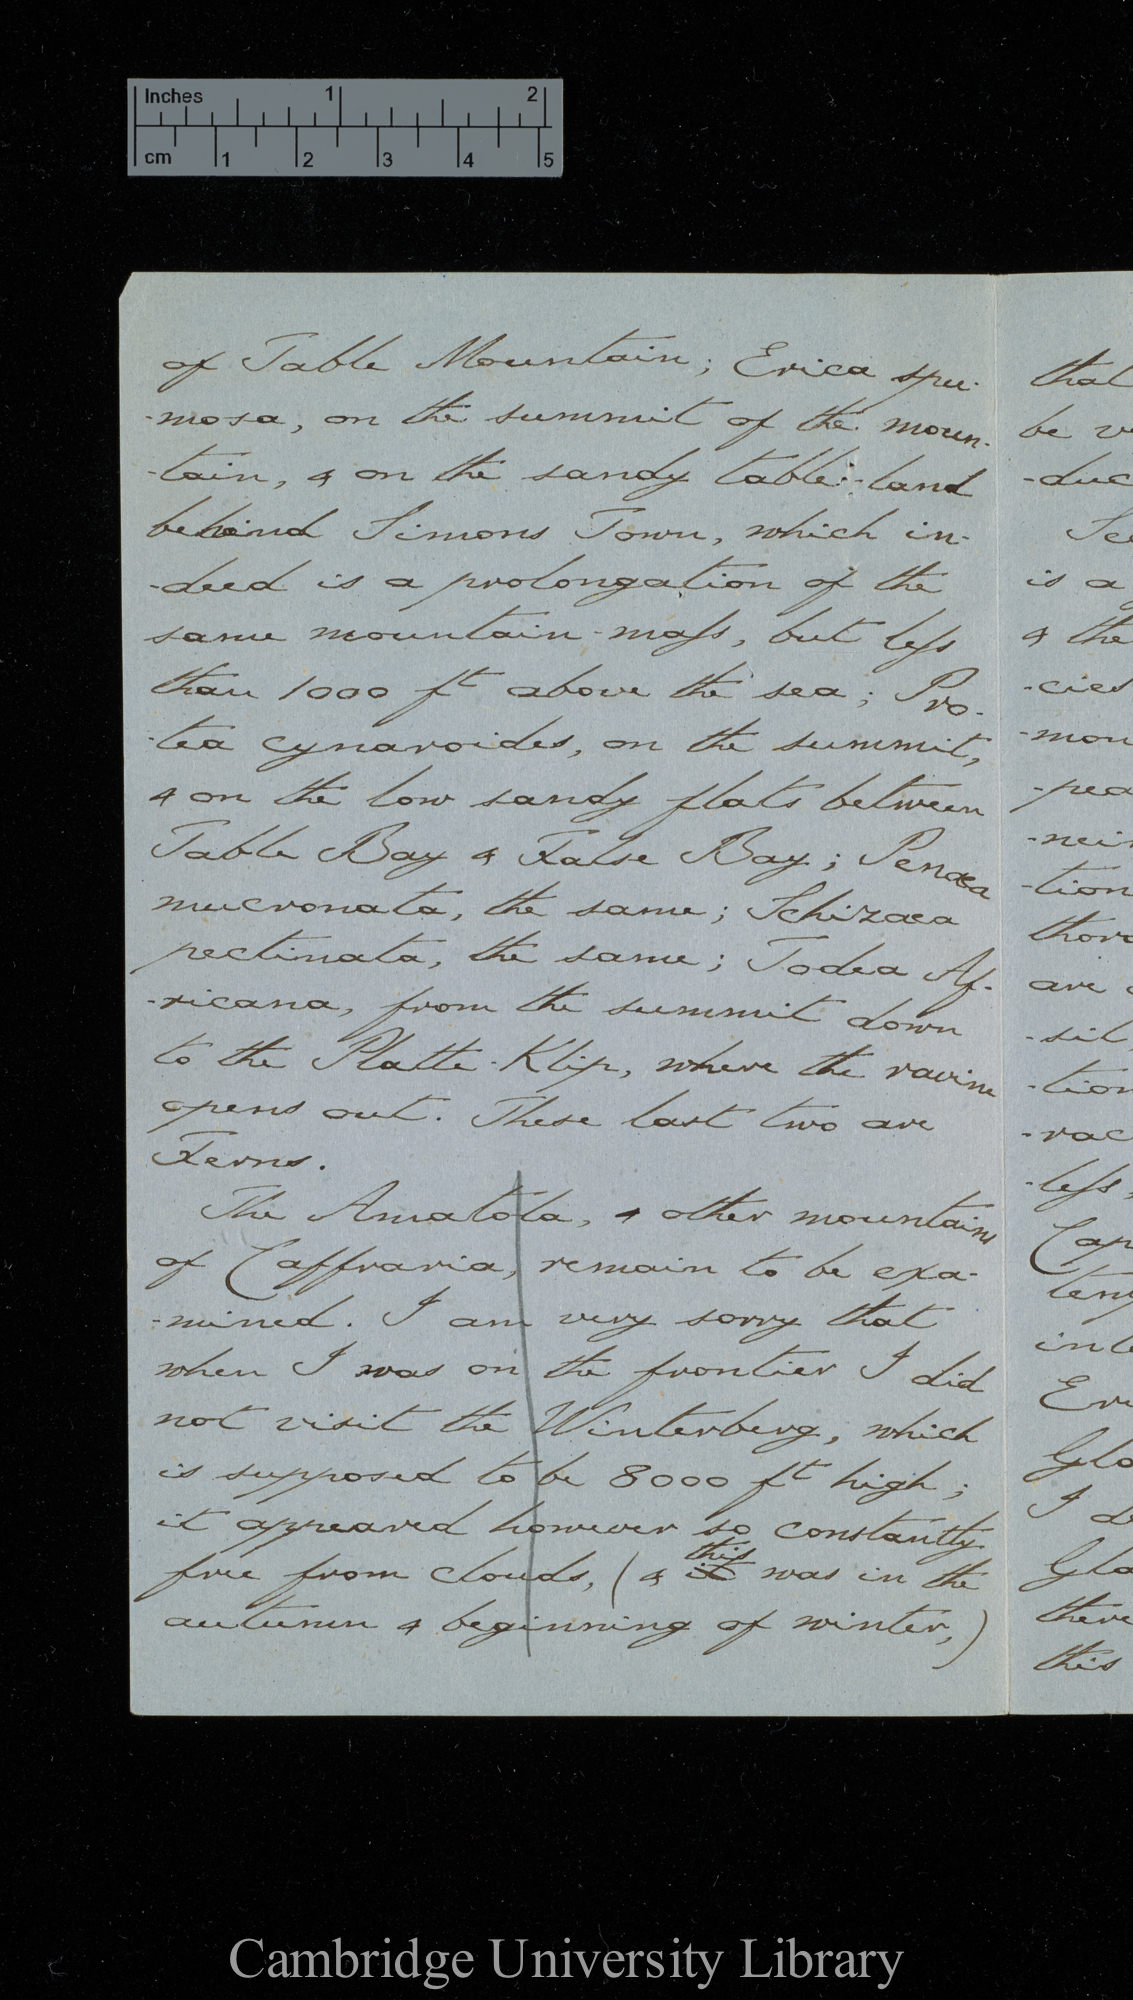 Inches 1 2
cm 1 2 3 4 5
of Table Mountain; Erica spu-
-mosa, on the summit of the moun-
-tain, & on the sandy table-land
behind Simons Town, which in-
-deed is a prolongation of the
same mountain-mass, but less
than 1000 ft above the sea; Pro-
-tea cynaroides, on the summit,
& on the low sandy flats between
Table Bay & False Bay; Penæa
mucronata, the same; Schizæa
pectinata, the same; Todea Af-
-ricana, from the summit down
to the Platte-Klip, where the ravine
opens out. These last two are
Ferns.
The Amatóla, & other mountains
of Caffraria, remain to be exa-
-mined. I am very sorry that
when I was on the frontier I did
not visit the Winterberg, which
is supposed to be 8000 ft high;
it appeared however so constantly
this
free from clouds, (& it was in the
autumn & beginning of winter,)
that
be
-duc
is a
& the
-cies
-mou
-pea
-tion
are
-sil
-tion
-rac
-less,
Cap
temp
inte
Glo
I de
Gla
there
this
Cambridge University Library